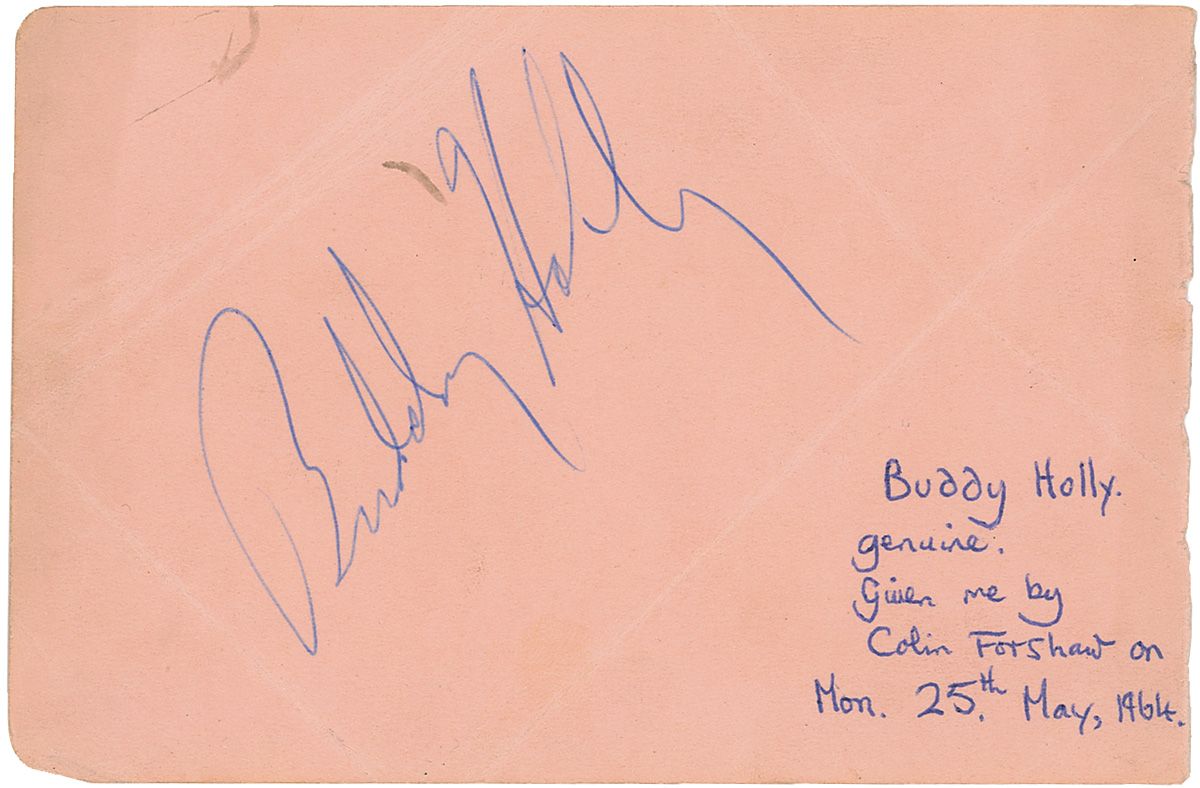 Buddy Holly
Buddy Holly.
genuine.
Given me by
Colin Forshaw on
Mon. 25.th May, 1964.